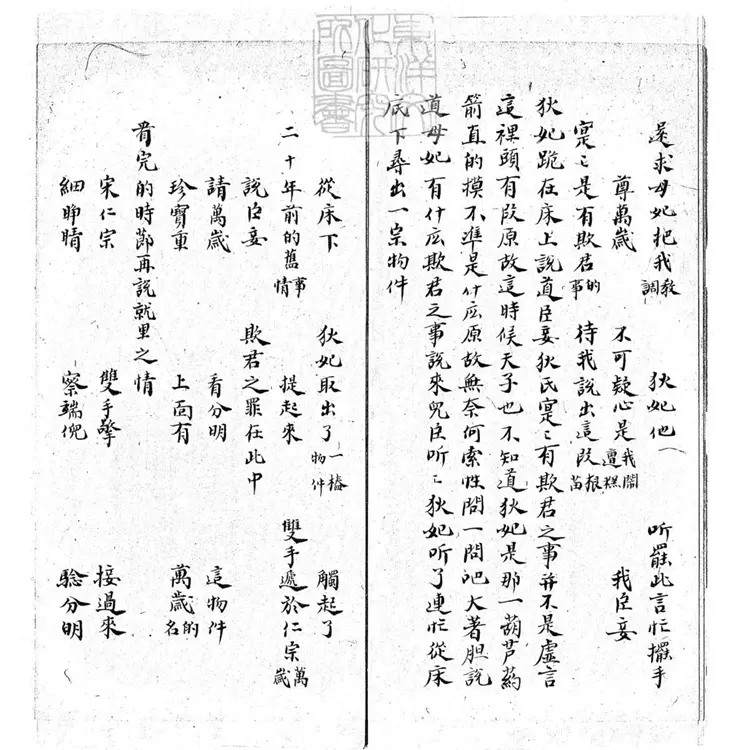 還求母妃把我教調 狄妃他一 听罷此言忙擺手
尊萬歲 不可疑心是我鬧遭糕 我臣妾
寔〻是有欺君的事 待我說出這段根苗
狄妃跪在床上說道臣妾狄氏寔〻有欺君之事并不是虛言
這裡頭有段原故這時候天子也不知道狄妃是那一葫芦葯
箭直的摸不準是什庅原故無奈何索性問一問吧大著胆說
道母妃有什庅欺君之事說來兒臣听〻狄妃听了連忙從床
底下尋出一宗物件
從床下 狄妃取出了一樁物件 觸起了
二十年前的舊事情 提起來 雙手遞於仁宗萬歲
說臣妾 欺君之罪在此中
請萬歲 看分明 這物件
珍寶重 上面有 萬歲的名
看完的時節再說就里之情
宋仁宗 雙手擎 接過來
細睁睛 察端倪 驗分明
東洋文化研究所圖書